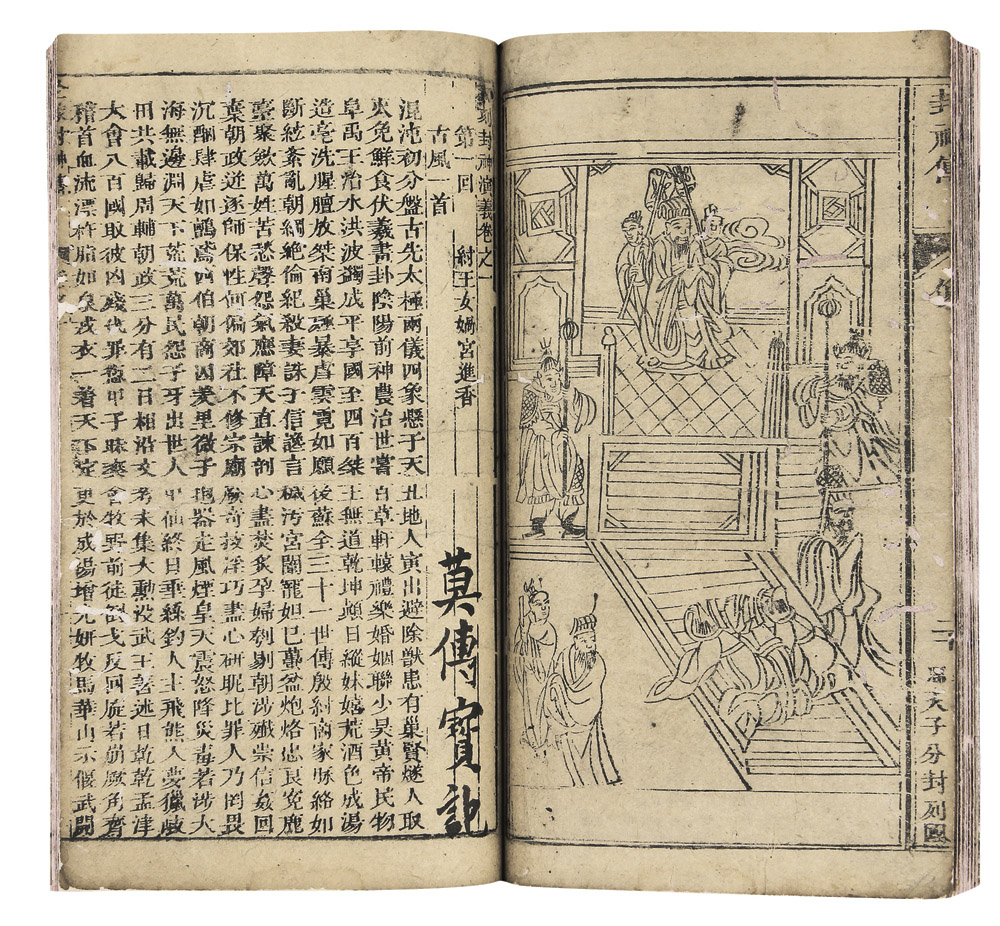 封神傳
像
二
周天子分封列國
刻封神演義卷之一
第一回 紂王女媧宮進香
莫傳寶記
古風一首
混沌初分盤古先太極兩儀四象懸子天丑地人寅出避除獸患有巢賢燧人取
火免鮮食伏羲書卦陰陽前神農治世嘗百草軒轅禮樂婚姻聯少昊黃帝民物
阜禹王治水洪波蠲成平享國至四百桀王無道乾坤顛日縱妹嬉荒酒色成湯
造亳洗腥膻放桀南巢拯暴虐雲霓如願後蘇全三十一世傳殷紂商家脉絡如
斷絃紊亂朝綱絕倫紀殺妻誅子信讒言穢污宮闈寵妲己蠆盆炮烙忠良冤鹿
臺聚斂萬姓苦愁聲怨氣應障天直諫剖心盡焚炙孕婦刳剔朝涉殲崇信姦回
棄朝政迸逐師保性何偏郊社不修宗廟廢奇技淫巧盡心研昵比罪人乃罔畏
沉酗肆虐如鸇鳶西伯朝商囚羑里微子抱器走風煙皇天震怒降災毒若涉大
海無邊淵天下荒荒萬民怨子牙出世人中仙終日垂絲釣人主飛熊入夢獵岐
田共載歸周輔朝政三分有二日相沿文考未集大勳歿武王善述日乾乾孟津
大會八百國取彼凶殘伐罪愆甲子昧爽會牧野前徒倒戈反回旋若崩厥角齊
稽首血流漂杵脂如泉戎衣一着天下定更於成湯增光妍牧馬華山示偃武開